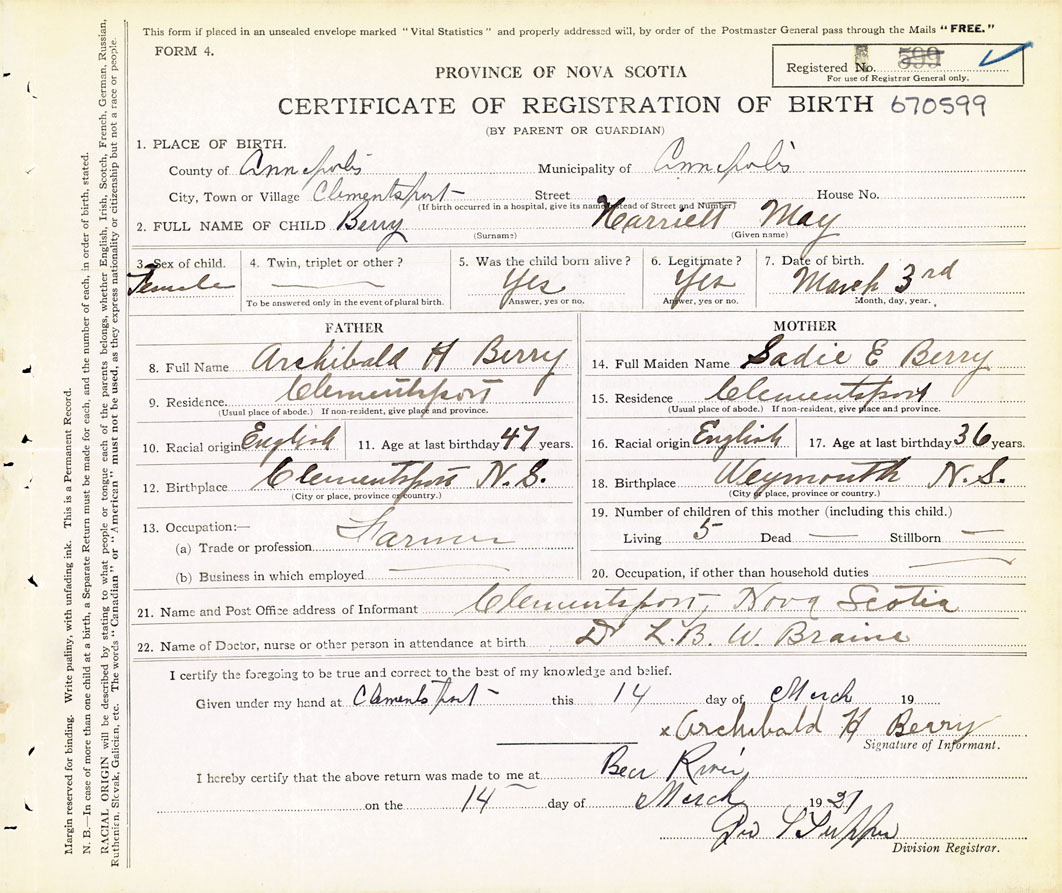 This form if placed in an unsealed envelope marked "Vital Statistics" and properly addressed will, by order of the Postmaster General pass through the Mails "FREE."
FORM 4.
Registered No. 599
For use of Registrar General only.
PROVINCE OF NOVA SCOTIA
CERTIFICATE OF REGISTRATION OF BIRTH 670599
(BY PARENT OR GUARDIAN)
1. PLACE OF BIRTH.
County of Annapolis Municipality of Annapolis
City, Town or Village Clementsport Street House No.
(If birth occurred in a hospital, give its name instead of Street and Number)
2. FULL NAME OF CHILD Berry Harriett May
(Surname) (Given name)
3. Sex of child. 4. Twin, triplet or other? 5. Was the child born alive? 6. Legitimate? 7. Date of birth.
Female — Yes Yes March 3rd
To be answered only in the event of plural birth. Answer, yes or no. Answer, yes or no. Month, day, year.
FATHER MOTHER
8. Full Name Archibald H Berry 14. Full Maiden Name Sadie E Berry
9. Residence. Clementsport 15. Residence Clementsport
(Usual place of abode.) If non-resident, give place and province. (Usual place of abode.) If non-resident, give place and province.
10. Racial origin English 11. Age at last birthday 47 years. 16. Racial origin English 17. Age at last birthday 36 years.
12. Birthplace Clementsport N.S. 18. Birthplace Weymouth N.S.
(City or place, province or country.) (City or place, province or country.)
13. Occupation:— 19. Number of children of this mother (including this child.)
(a) Trade or profession Farmer Living 5 Dead — Stillborn —
(b) Business in which employed — 20. Occupation, if other than household duties —
21. Name and Post Office address of Informant Clementsport, Nova Scotia
22. Name of Doctor, nurse or other person in attendance at birth Dr L. B. W. Braine
I certify the foregoing to be true and correct to the best of my knowledge and belief.
Given under my hand at Clementsport this 14 day of March 19
x Archibald H Berry
Signature of Informant.
I hereby certify that the above return was made to me at Bear River
on the 14 day of March 1927
Geo Tupper
Division Registrar.
Margin reserved for binding. Write plainly, with unfading ink. This is a Permanent Record.
N. B.—In case of more than one child at a birth, a Separate Return must be made for each, and the number of each, in order of birth, stated.
RACIAL ORIGIN will be described by stating to what people or tongue each of the parents belongs, whether English, Irish, Scotch, French, German, Russian,
Ruthenian, Slovak, Galician, etc. The words "Canadian" or "American" must not be used, as they express nationality or citizenship but not a race or people.